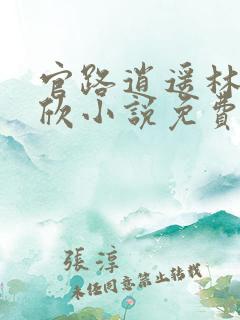 官路逍遥林
欣小説免費
張淳
未经同意禁止转载